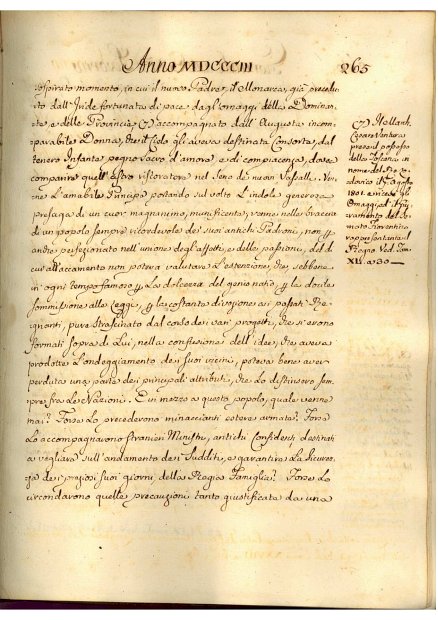 Anno MDCCCIII
265
sospirato momento, in cui il nuovo Padre, il Monarca, già precedu-
to dall'Iride fortunata di pace, dagl'omaggi della Dominan-
te, e delle Provincie (7) accompagnato dall'Augusta incom-
parabile Donna, che il Cielo gli aveva destinata Consorte, dal
tenero Infante, pegno sacro d'amore, e di compiacenza, dove
comparire quell'Astro ristoratore nel seno de' nuovi Vassalli. Ven-
ne l'amabile Principe portando sul volto l'indole generosa
presaga di un cuor magnanimo, munificente, venne nelle braccia
di un popolo sempre ricordevole dei suoi antichi Padroni, non
anche perfezionato nell'unione degl'affetti, e delle passioni, del di
cui attaccamento non poteva valutare l'estenzione, che, sebbene
in ogni tempo famoso la dolcezza del genio natio, la docile
sommissione alle Leggi, la costante divozione ai passati Re-
gnanti, pure strascinato dal corso dei vari progetti, che si erono
formati sopra di Lui, nella confusione dell'idee, che aveva
prodotte l'ondeggiamento dei suoi vicini, poteva bene aver
perduta una parte dei principali attributi, che lo distinsero sem-
pre fra le Nazioni. E in mezzo a questo popolo, quale venne
mai? Forse lo precederono minaccianti estere armate? Forse
lo accompagnarono stranieri Ministri, antichi Confidenti destinati
a vegliare sull'andamento dei Sudditi, e garantire la sicurez-
za dei preziosi suoi giorni, della Regia Famiglia? Forse lo
circondarono quelle precauzioni tanto giustificate da una
(7) Il March.
Cesare Ventura
prese il possesso
della Toscana in
nome del Re Lo-
dovico il Agosto
1801. e ricevè gli
Omaggi, ed il Giu-
ramento del Se-
nato Fiorentino
rappresentante
il Regno Ved. Tom.
XLI. a 30